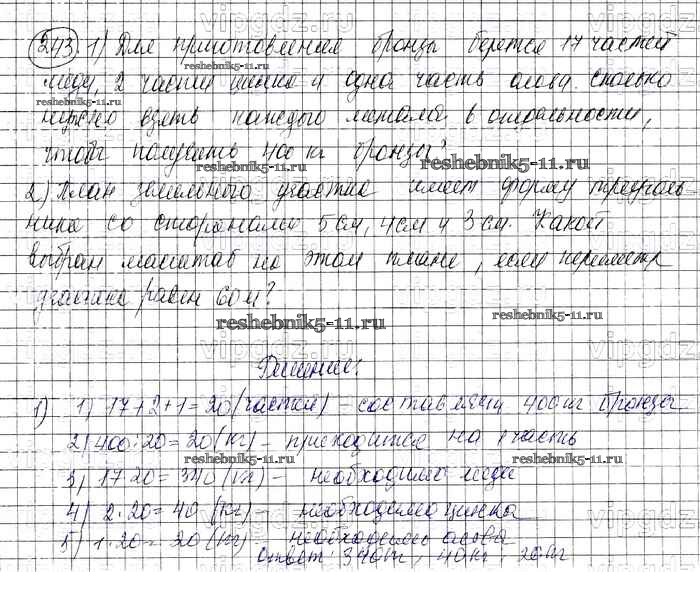 243. 1) Для приготовления бронзы берется 17 частей
меди, 2 части цинка и одна часть олова. Сколько
нужно взять каждого металла в отдельности,
чтобы получить 400 кг бронзы?
2) План земельного участка имеет форму треуголь-
ника со сторонами 5 см, 4 см и 3 см. Какой
выбран масштаб на этом плане, если периметр
участка равен 60 м?
Решение:
1) 1) 17+2+1=20 (частей) – составляют 400 кг бронзы
2) 400:20=20 (кг) – приходится на 1 часть
3) 17·20=340 (кг) – необходимо меди
4) 2·20=40 (кг) – необходимо цинка
5) 1·20=20 (кг) – необходимо олова
Ответ: 340 кг, 40 кг, 20 кг
reshebnik5-11.ru
reshebnik5-11.ru
reshebnik5-11.ru
reshebnik5-11.ru
reshebnik5-11.ru
reshebnik5-11.ru
reshebnik5-11.ru
reshebnik5-11.ru